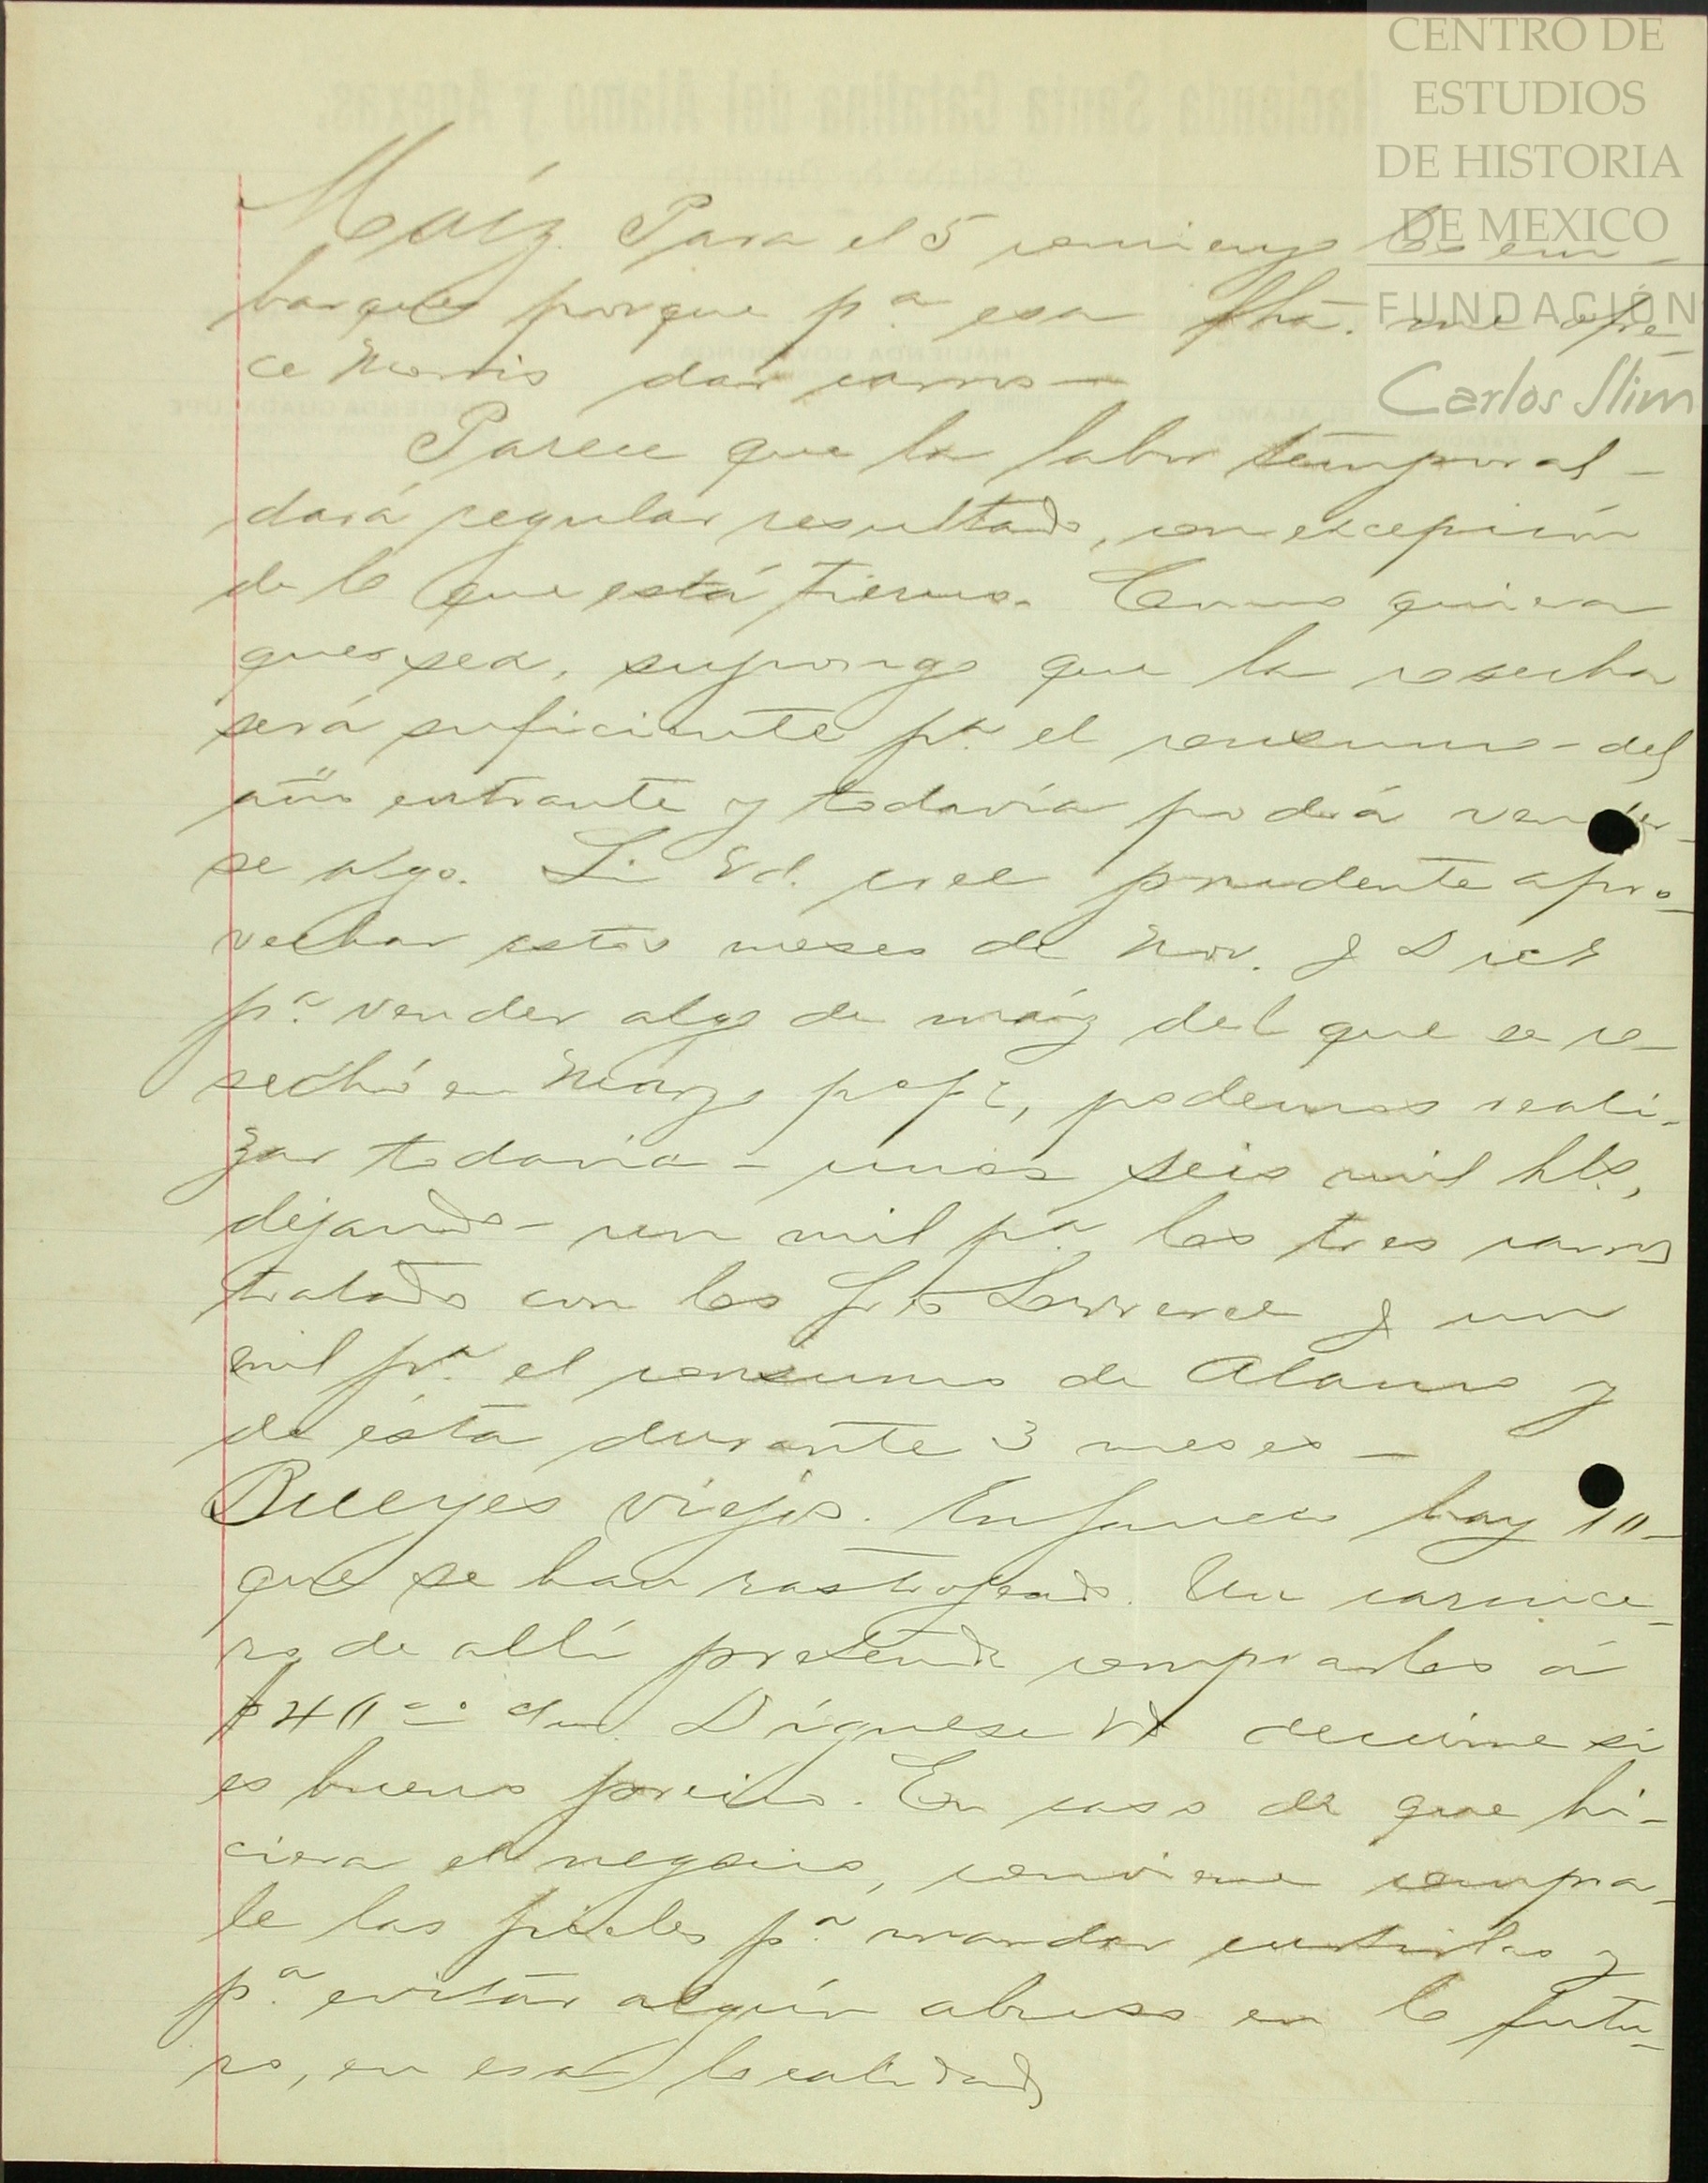 CENTRO DE
ESTUDIOS
DE HISTORIA
DE MEXICO
FUNDACIÓN
Carlos Slim
Hacienda Santa Catalina del Alamo y Anexas.
Maíz. Para el 5 comienzo los em-
barques porque pª esa fha. me ofre-
ce Morris dar carros—
Parece que la labor temporal-
dará regular resultado, con excepción
de lo que está tierno. Como quiera
que sea, supongo que la cosecha
será suficiente pª el consumo-del
año entrante y todavía podrá vender-
se algo. Si Vd. cree prudente apro-
vechar estos meses de Nov. y Dice
pª vender algo de maíz del que se co-
sechó en Marzo ppº, podemos reali-
zar todavía- unos seis mil hls,
dejando- un mil pª los tres carros
tratado con los y un
mil pª el consumo de Alamo y
de ésta durante 3 meses—
Bueyes viejos. En hay 10-
que se han rastrojeado. Un carnice-
ro de allí pretende comprarlos á
$40 Dígnese Vd decirme si
es bueno precio. En caso de que hi-
ciera el negocio, conviene compra-
le las pieles pª mandar curtirlas y
pª evitar algún abuso en lo futu-
ro, en esa localidad